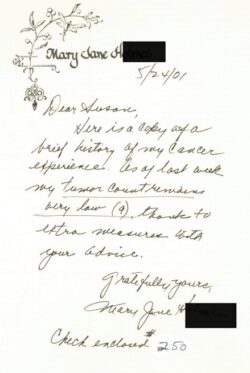 Mary Jane
5/24/01
Dear Susan,
Here is a copy of a
brief history of my cancer
experience. As of last week
my tumor count remains
very low (9), thanks to
extra measures with
your advice.
Gratefully yours,
Mary Jane
Check enclosed # 250